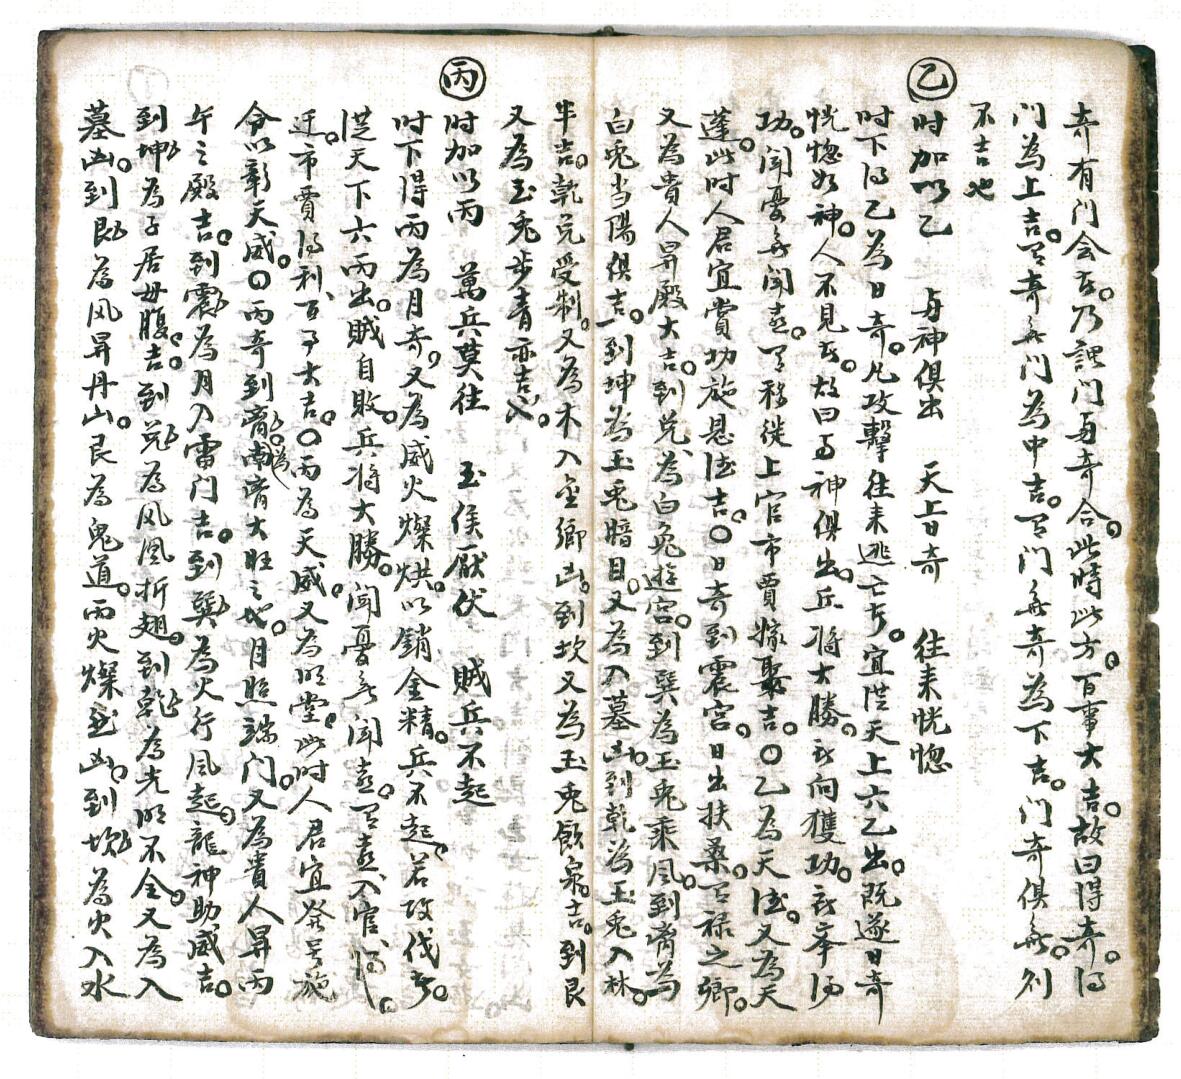 奇有门会者。乃謂门與奇合。此時此方。百事大吉。故曰得奇。得
门為上吉。有奇無门為中吉。有门無奇為下吉。门奇俱無。則
不吉也
乙
时加以乙 與神俱出 天上日奇 往来恍惚
时下得乙為日奇。凡攻擊往来逃亡者。宜從天上六乙出。既遂日奇
恍惚如神。人不見者。故曰與神俱出。兵將大勝。所向獲功。所奉得
功。闻憂無闻喜。有移徙上官市賈嫁娶吉。乙為天德。又為天
蓬。此时人君宜赏功施恩德吉。日奇到震宮。日出扶桑。有禄之卿。
又為貴人昇殿大吉。到兑、為白兔遊宮。到巽為玉兔乘風。到离為
白兔当陽俱吉。到坤為玉兔暗目。又為入墓凶。到乾為玉兔入林。
半吉。乾兑受制。又為木入金卿凶。到坎又為玉兔飲泉。吉。到艮
又為玉兔步青亦吉
丙
时加以丙 萬兵莫往 玉侯厭伏 賊兵不起
时下得丙為月奇。又為威火燦烘。以銷金精。兵不起。若攻伐者。
從天下六丙出。賊自敗。兵将大勝。闻憂無闻喜。有喜、入官、得
迁。市賈得利、百事大吉。丙為天威又為明堂。此时人君宜發号施
令以彰天威。丙奇到离。為南离大旺之地。月照端门。又為貴人昇丙
午之殿吉。到震為月入雷门吉。到巽為火行風起。龍神助威吉。
到坤為子居母腹。吉。到兑為风凰折翅。到乾為光明不全。又為入
墓凶。到艮為风昇丹山。艮為鬼道。丙火燦凶。到坎為火入水